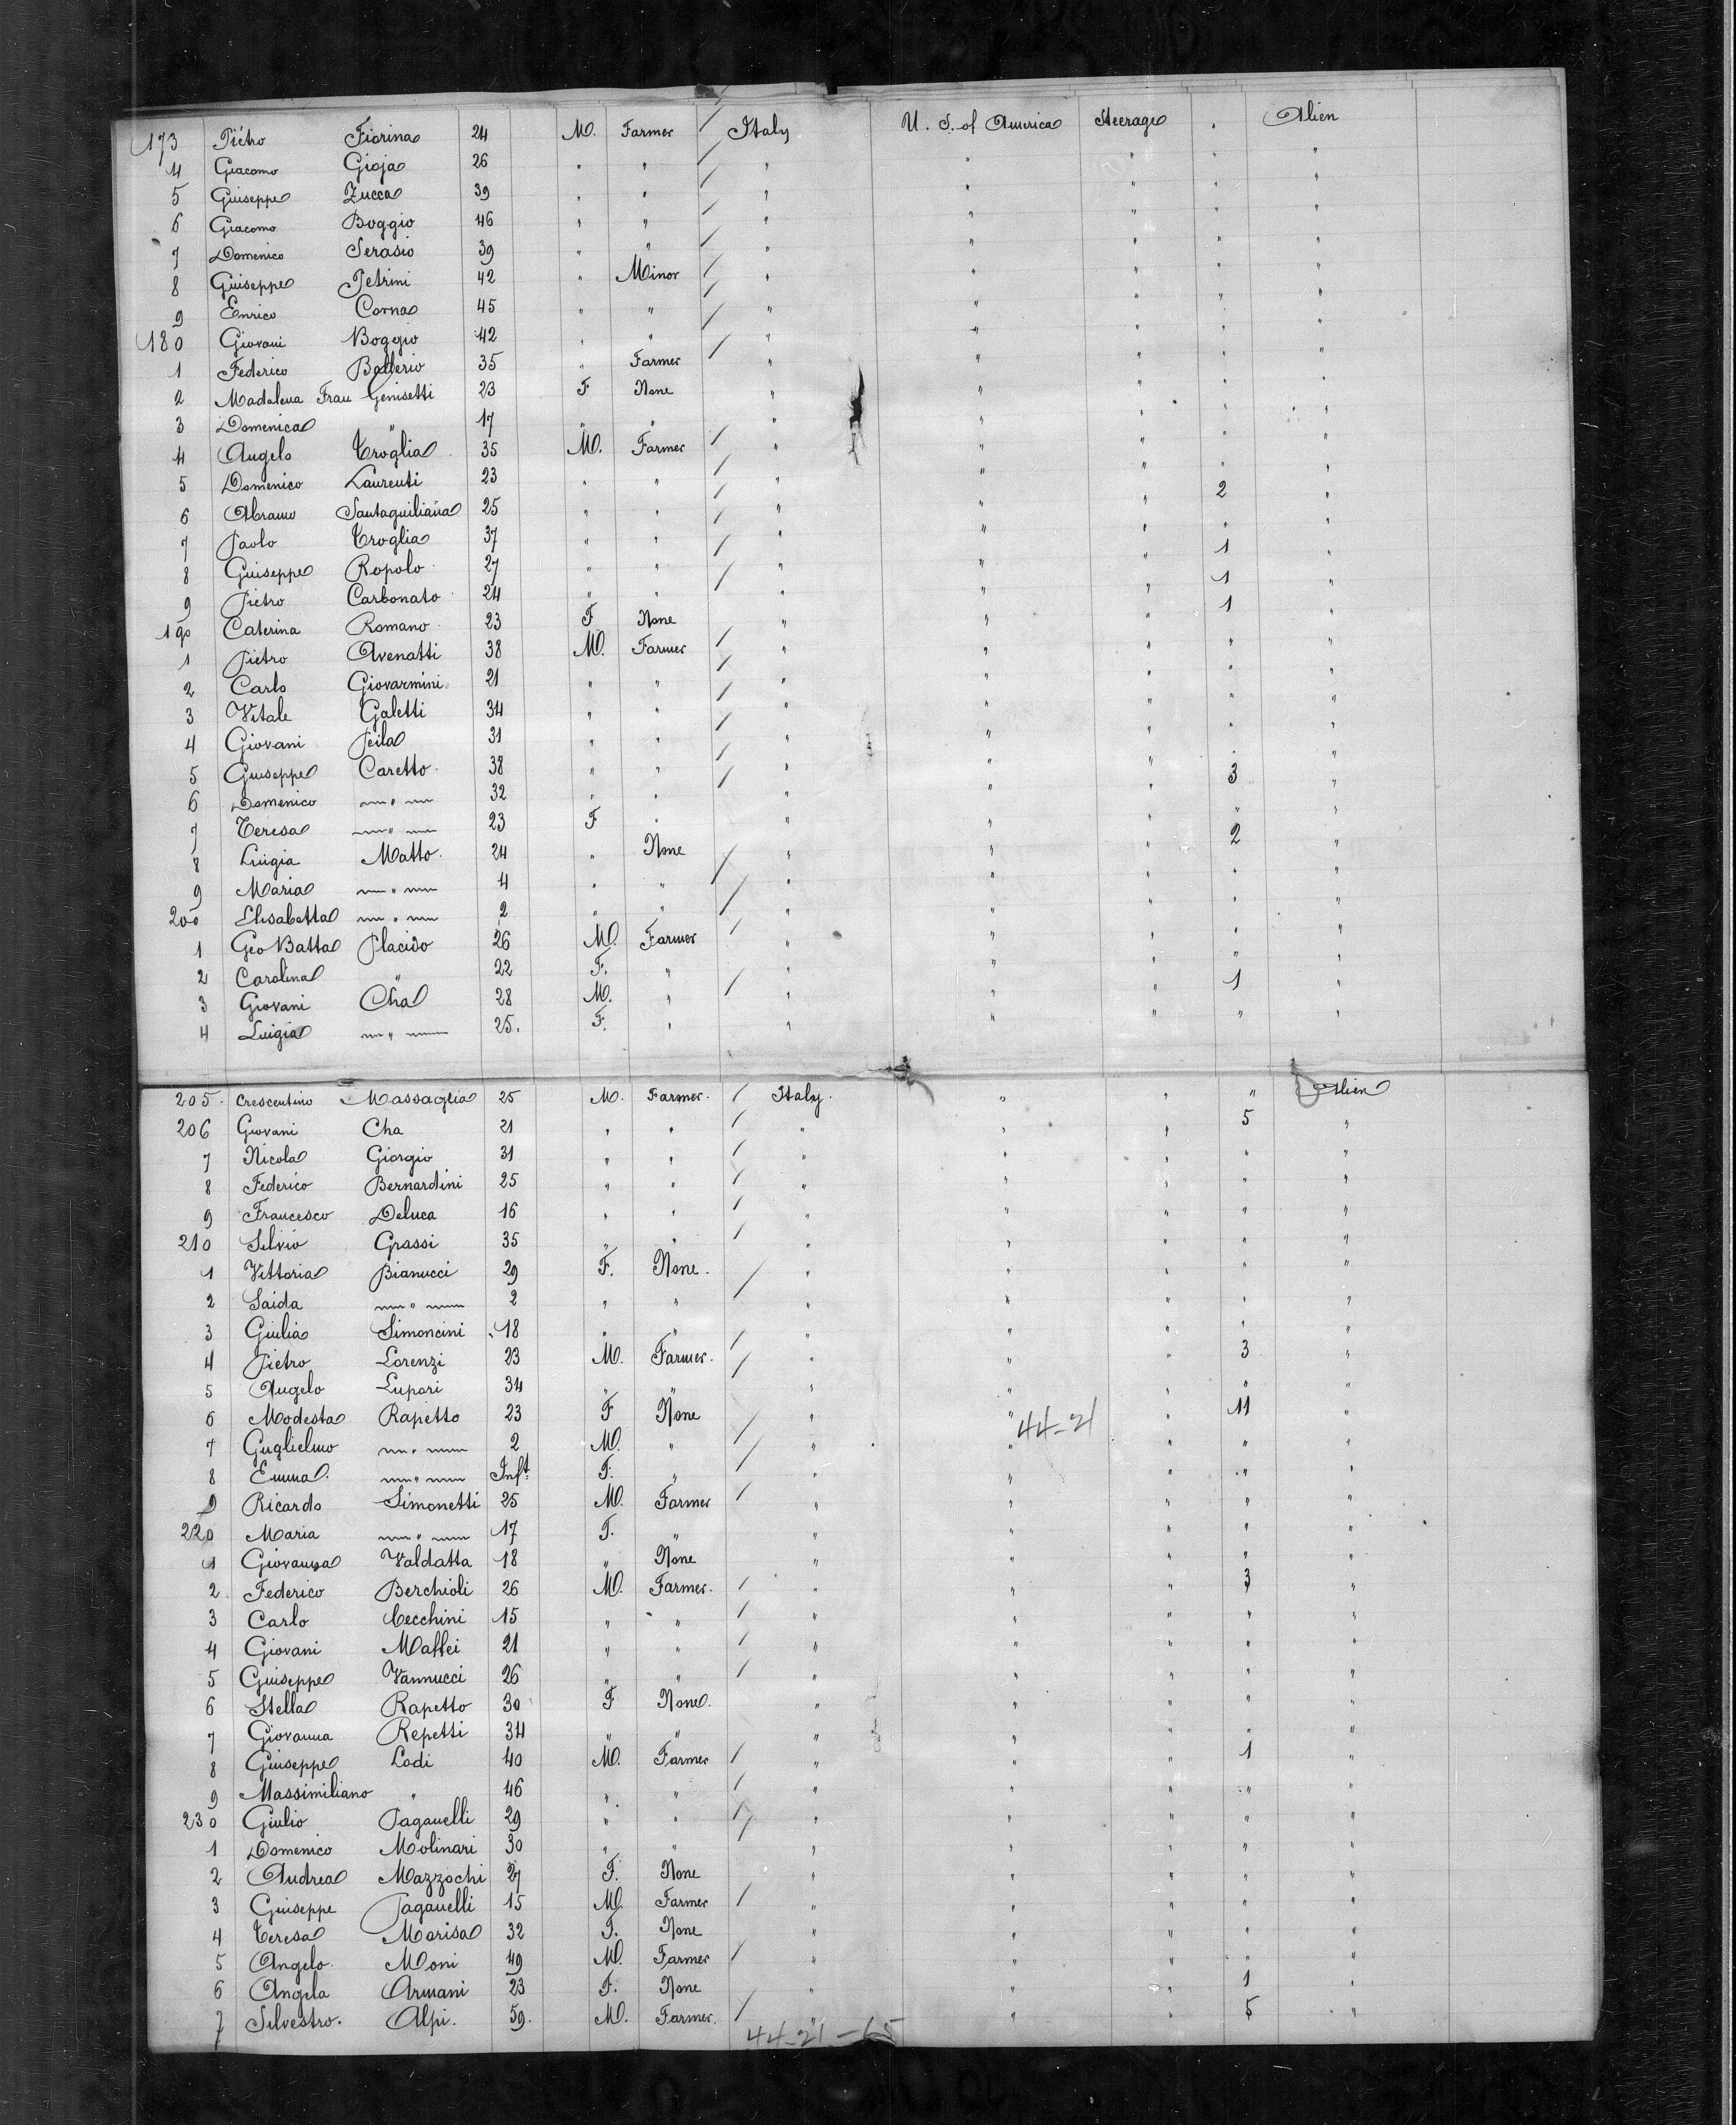 173 Piétro Fiorina 24 M. Farmer / Italy U. S. of America Steerage " Alien
4 Giacomo Gioja 26 " " / " " " " "
5 Giuseppe Zucca 39 " " / " " " " "
6 Giacomo Boggio 46 " " / " " " " "
7 Domenico Serasio 39 " " / " " " " "
8 Giuseppe Petrini 42 " Minor / " " " " "
9 Enrico Corna 45 " " / " " " " "
180 Giovani Boggio 42 " " / " " " " "
1 Federico Balterio 35 " Farmer / " " " " "
2 Madalena Frau Genisetti 23 F None " " " " "
3 Domenica " 17 " " " " " " "
4 Angelo Troglia 35 M. Farmer / " " " " "
5 Domenico Laurenti 23 " " / " " " " "
6 Abramo Santaguiliana 25 " " / " " " 2 "
7 Paolo Troglia 37 " " / " " " " "
8 Guiseppe Ropolo 27 " " / " " " 1 "
9 Pietro Carbonato 24 " " / " " " 1 "
190 Caterina Romano 23 F None " " " 1 "
1 Pietro Avenatti 38 M. Farmer / " " " " "
2 Carlo Giovarmini 21 " " / " " " " "
3 Vitale Galetti 34 " " / " " " " "
4 Giovani Peila 31 " " / " " " " "
5 Guiseppe Caretto 38 " " / " " " " "
6 Domenico " 32 " " / " " " 3 "
7 Teresa " 23 F " " " " " "
8 Luigia Matto 24 " None / " " " 2 "
9 Maria " 4 " " / " " " " "
200 Elisabetta " 2 " " / " " " " "
1 Geo Batta Placido 26 M. Farmer / " " " " "
2 Carolina " 22 F. " " " " " "
3 Giovani Cha 28 M. " / " " " 1 "
4 Luigia " 25. F. " " " " " "
205 Crescentino Massaglia 25 M. Farmer. / Italy. " " " Alien
206 Giovani Cha 21 " " / " " " 5 "
7 Nicola Giorgio 31 " " / " " " " "
8 Federico Bernardini 25 " " / " " " " "
9 Francesco Deluca 16 " " / " " " " "
210 Silvio Grassi 35 " " / " " " " "
1 Vittoria Bianucci 29 F. None. / " " " " "
2 Saida " 2 " " " " " " "
3 Giulia Simoncini 18 " " " " " " "
4 Pietro Lorenzi 23 M. Farmer. / " " " 3 "
5 Angelo Lupori 34 " " / " " " " "
6 Modesta Rapetto 23 F None " " " 11 "
44-21
7 Guglielmo " 2 M. " / " " " " "
8 Emma " Inft. F. " / " " " " "
9 Ricardo Simonetti 25 M. Farmer / " " " " "
220 Maria " 17 F. " " " " " "
1 Giovanna Valdatta 18 " None " " " " "
2 Federico Berchioli 26 M. Farmer. / " " " 3 "
3 Carlo Cecchini 15 " " / " " " " "
4 Giovani Maffei 21 " " / " " " " "
5 Guiseppe Vannucci 26 " " / " " " " "
6 Stella Rapetto 30 F None. " " " " "
7 Giovanna Repetti 34 " " " " " " "
8 Giuseppe Lodi 40 M. Farmer / " " " 1 "
9 Massimiliano " 46 " " / " " " " "
230 Giulio Paganelli 29 " " / " " " " "
1 Domenico Molinari 30 " " / " " " " "
2 Andrea Mazzochi 27 F. None " " " " "
3 Guiseppe Paganelli 15 M. Farmer / " " " " "
4 Teresa Marisa 32 F. None " " " " "
5 Angelo Moni 49 M. Farmer / " " " " "
6 Angela Armani 23 F. None " " " 1 "
7 Silvestro. Alpi. 59. M. Farmer. / " " " 5 "
44-21-65